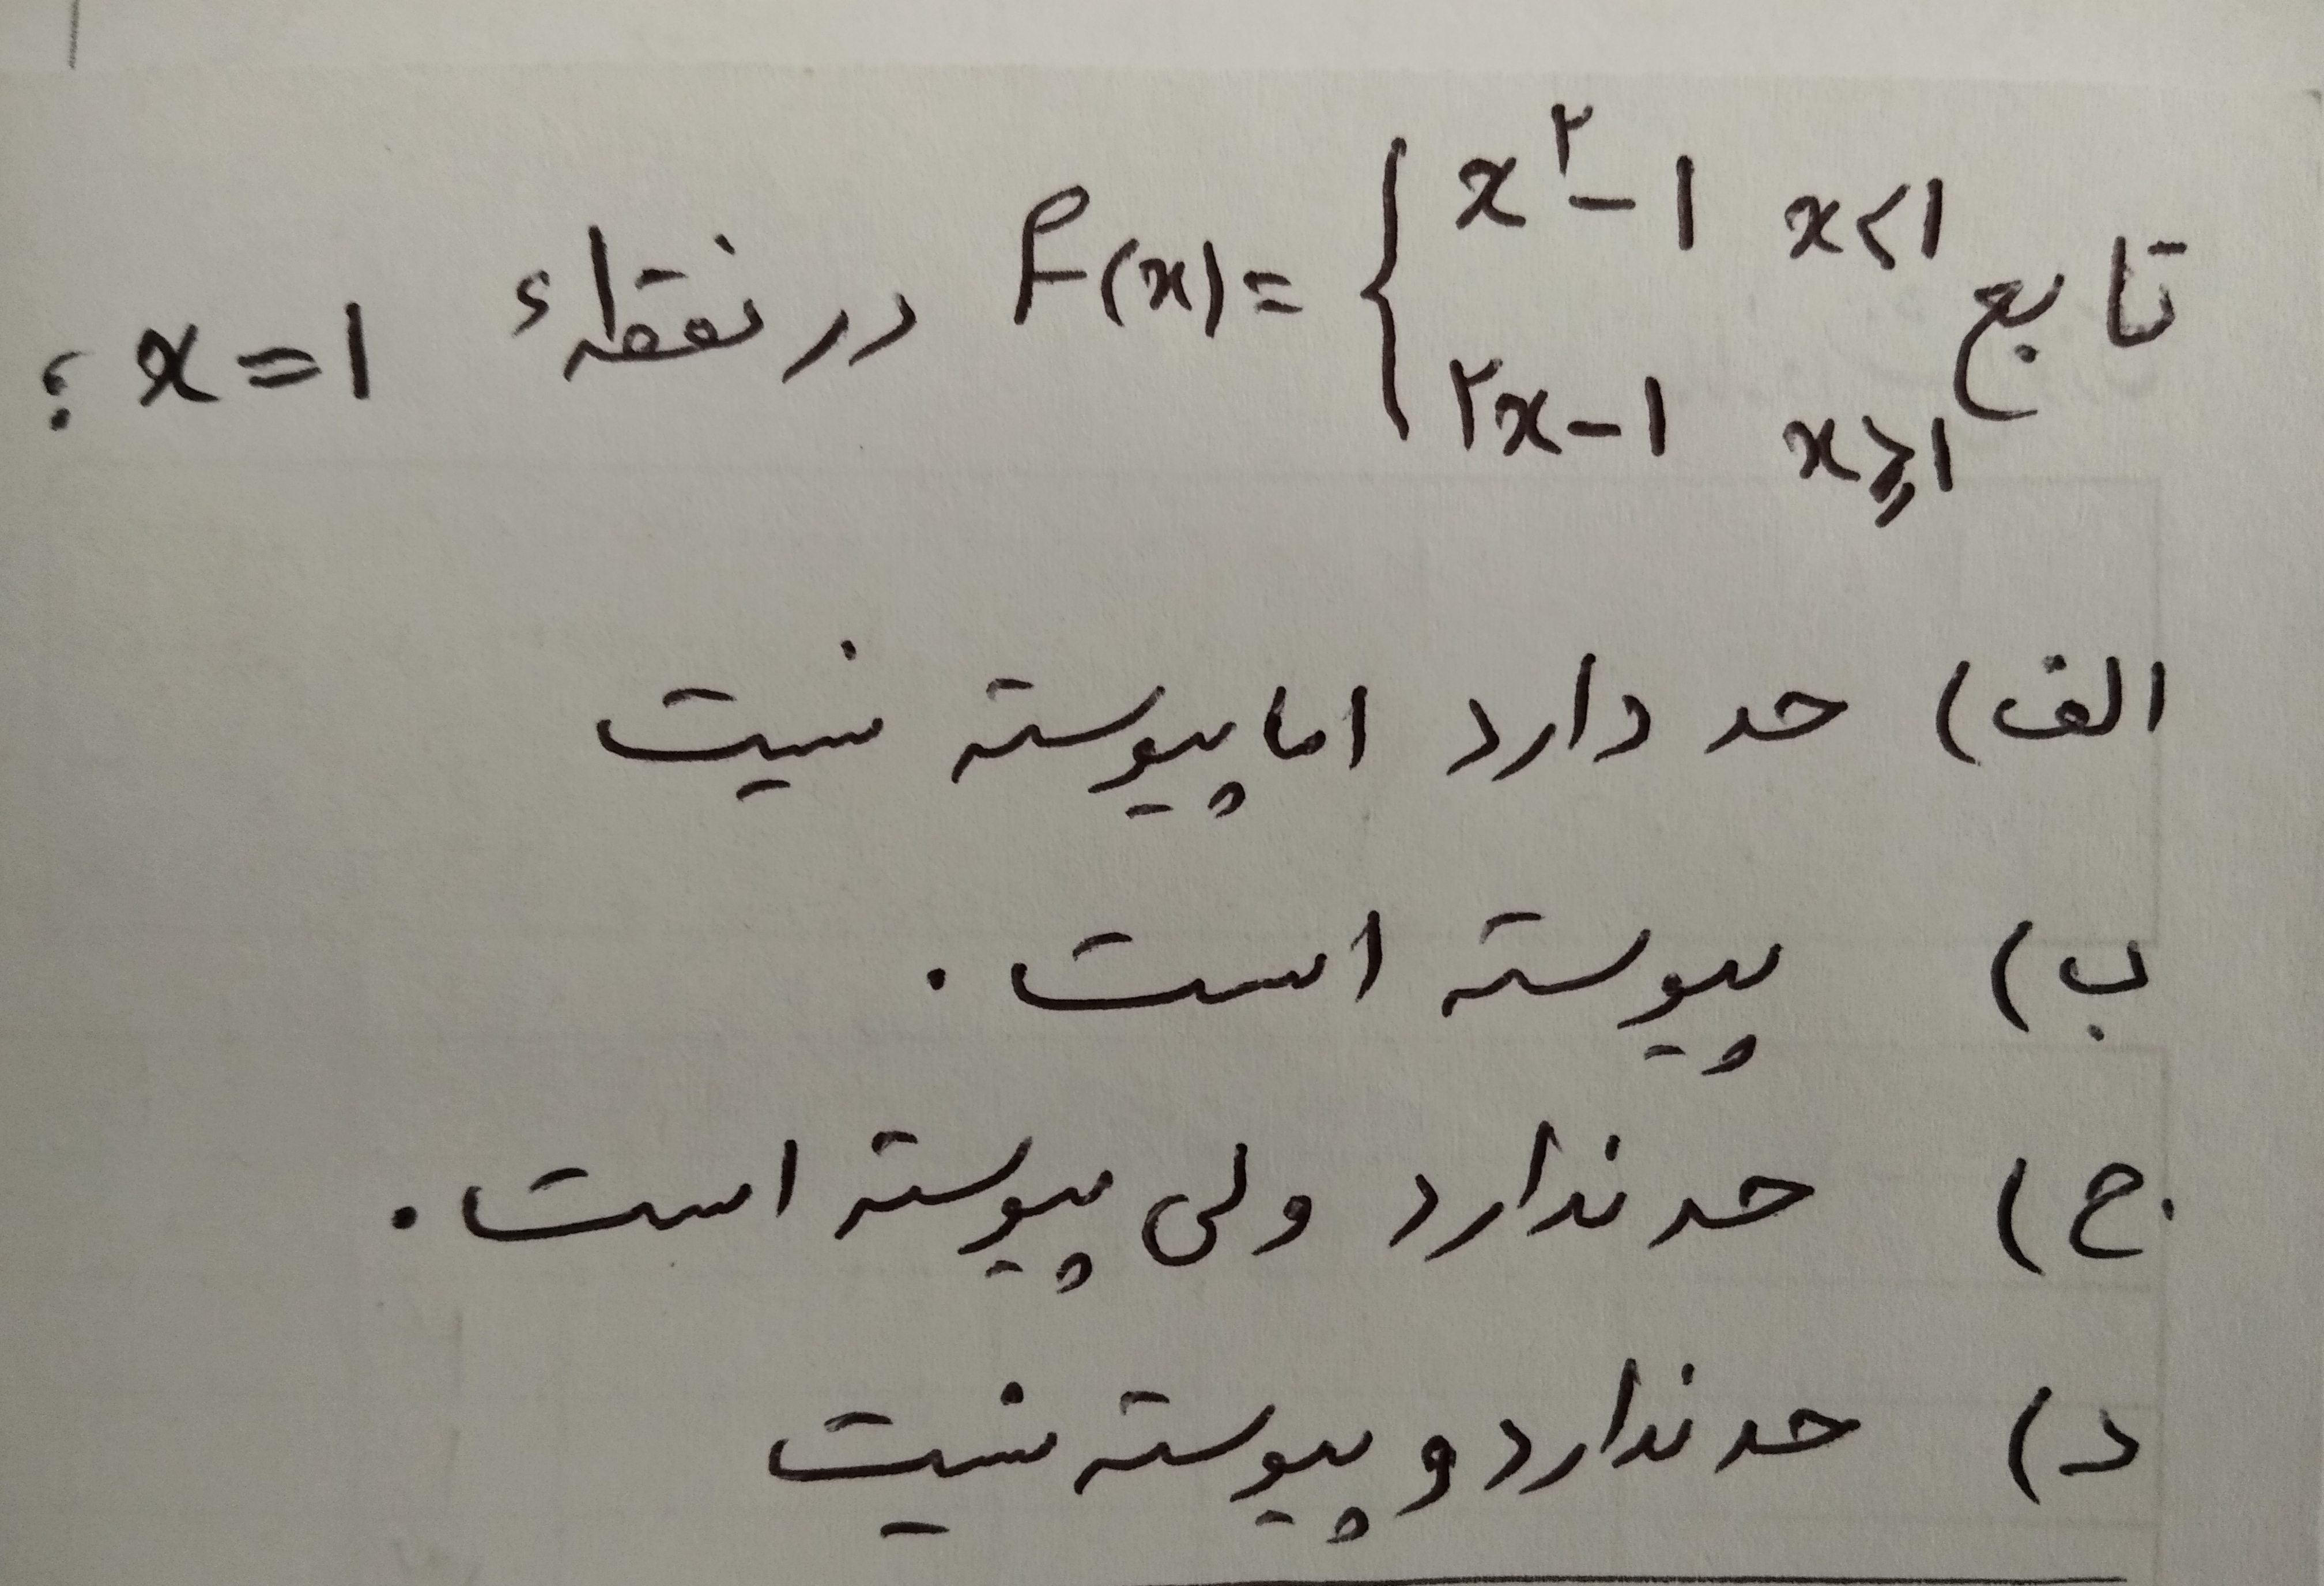 تابع f(x) = { x^۲ - ۱   x < ۱ در نقطهٔ x = ۱ ؟
۲x - ۱   x ⩾ ۱
الف) حد دارد اما پیوسته نیست
ب) پیوسته است .
ج) حد ندارد ولی پیوسته است .
د) حد ندارد و پیوسته نیست